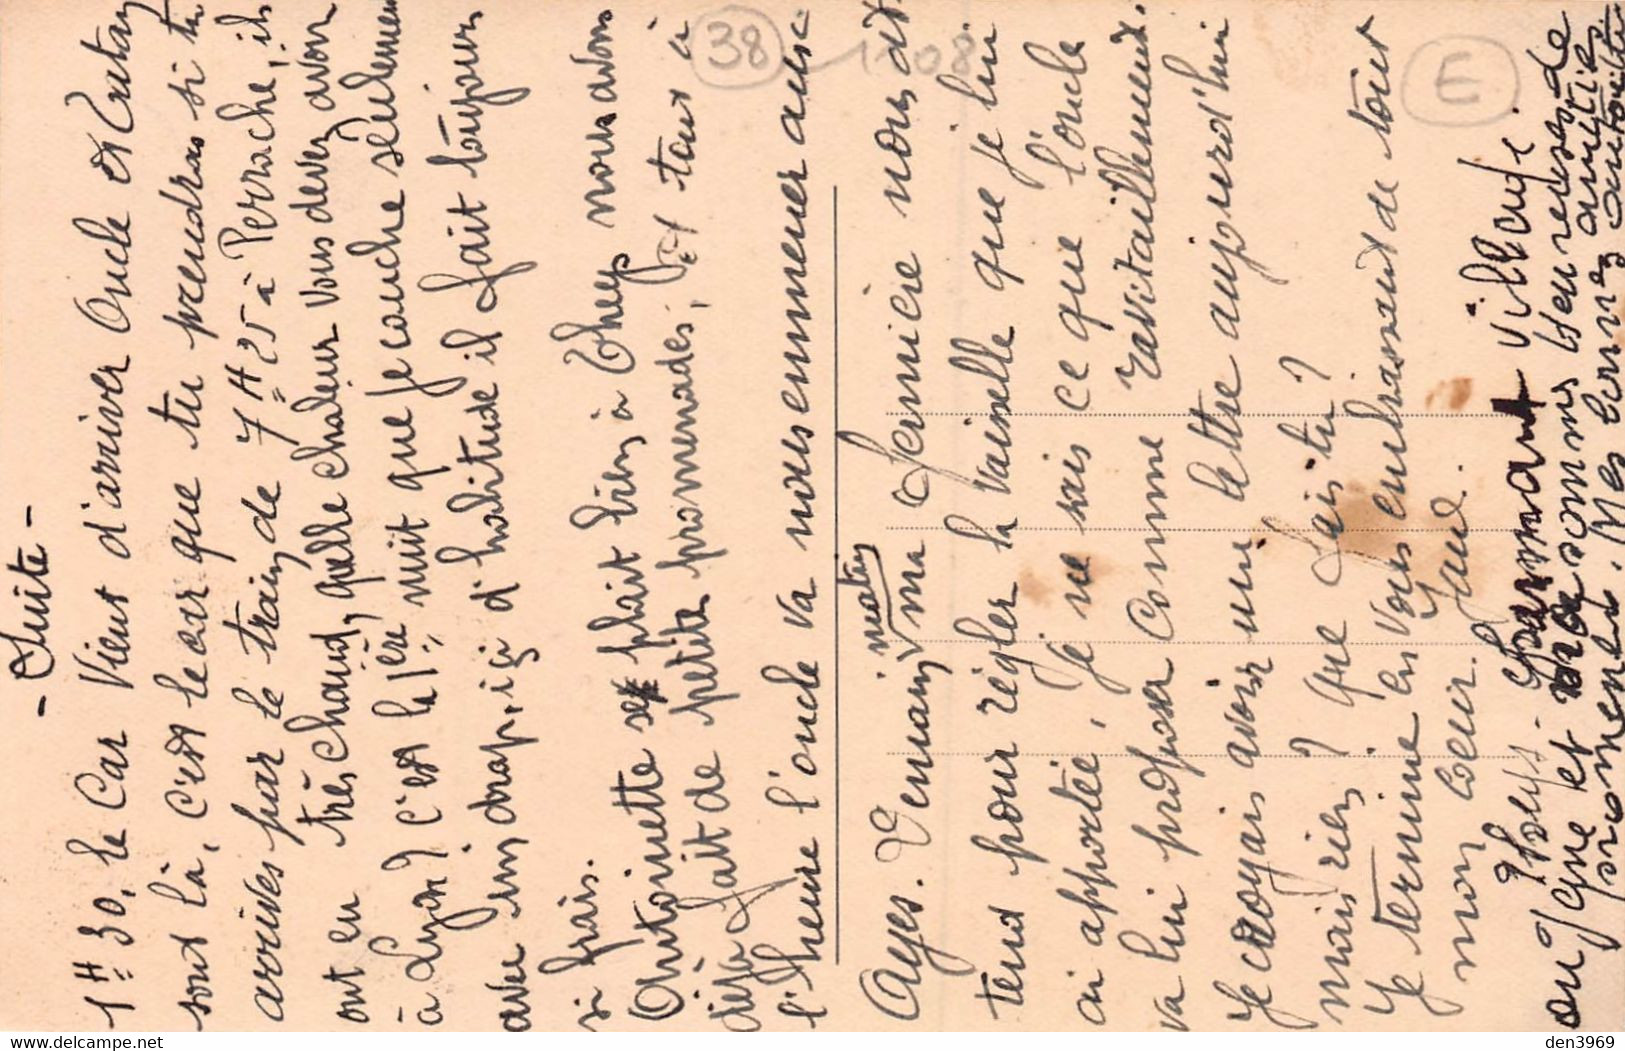 - Suite -
1H30. le Car Vient d'arriver Oncle et Tatan
sont là, c'est le car que tu prendras si tu
arrives par le train de 7H25 à Perrache, ils
ont eu très chaud, quelle chaleur vous devez avoir
à Lyon? c'est la 1ère nuit que je couche seulement
avec un drap, ici d'habitude il fait toujours
si frais.
Antoinette se plait bien à Theys nous avons
déjà fait de petites promenades, et tout à
l'heure l'oncle va nous emmener avec
Ayes. Demain matin ma Fermière nous at-
tend pour régler la vaisselle que je lui
ai apportée, je ne sais ce que l'oncle
va lui proposer comme ravitaillement.
Je croyais avoir une lettre aujourd'hui
mais rien? que fais tu?
Je termine en vous embrassant de tout
mon coeur. Jane.
Villeuf.
ou sommes heureuses de
amitiés
Mes bonnes
38 1108
E
den3969
www.delcampe.net